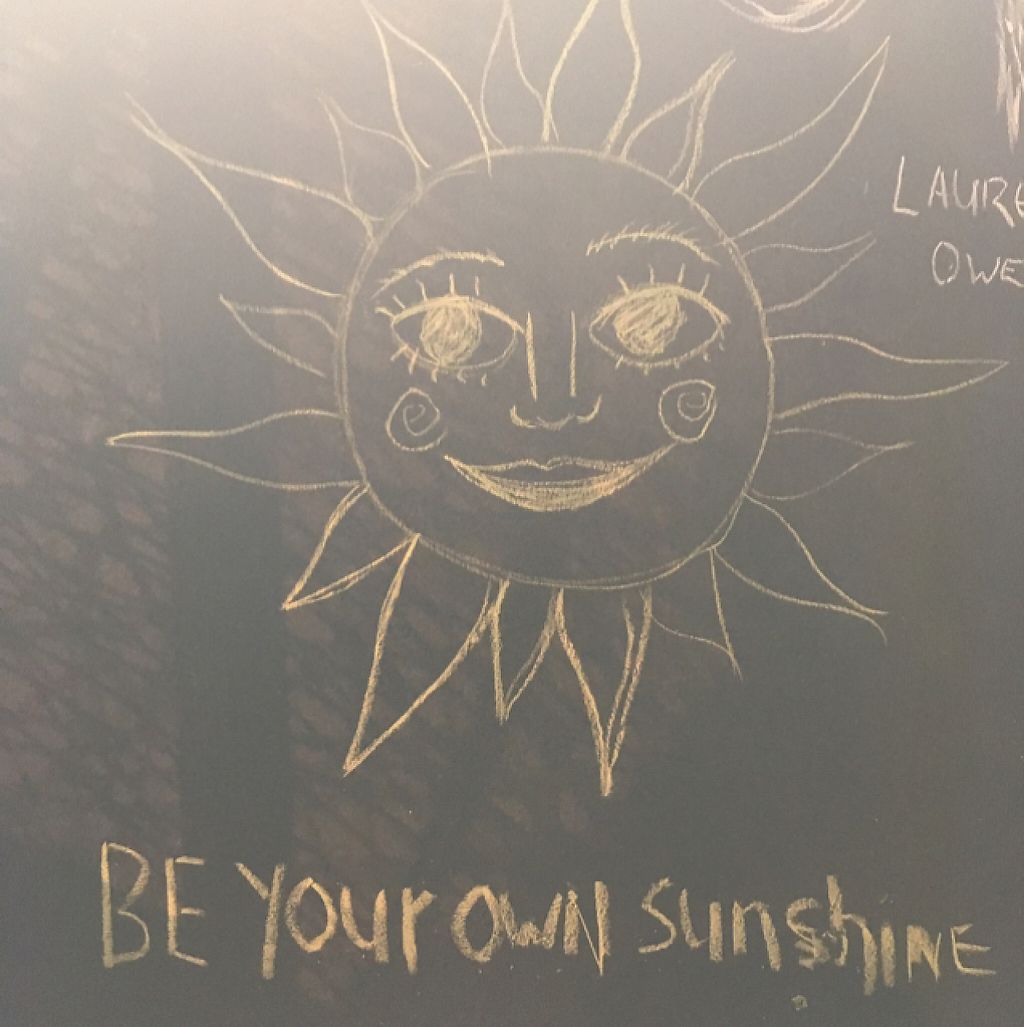 LAURE
OWE
BE YOUr OWN SunshINE